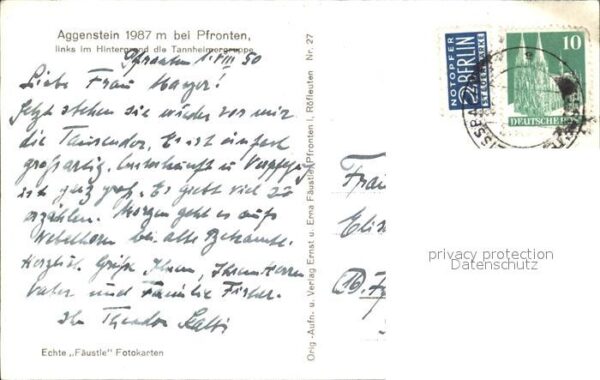 Aggenstein 1987 m bei Pfronten,
links im Hintergrund die Tannheimergruppe
Pfronten 1. VIII 50
Liebe Frau
Jetzt stehen sie wieder vor mir
die Es ist einfach
großartig. Unterkunft u Verpflegg
ist ganz groß. Es giebt viel zu
erzählen. Morgen geht es aufs
bei alte Bekannte.
Herzlich Grüße Ihnen, Ihrem Herrn
Vater und Familie Fischer.
Ihr Theodor
Echte „Fäustle" Fotokarten
Orig.-Aufn. u. Verlag Ernst u. Erna Fäustle, Pfronten I, Röfleuten Nr. 27
NOTOPFER
2 BERLIN
STEUERMARKE
10
DEUTSCHE
Frau
privacy protection
Datenschutz